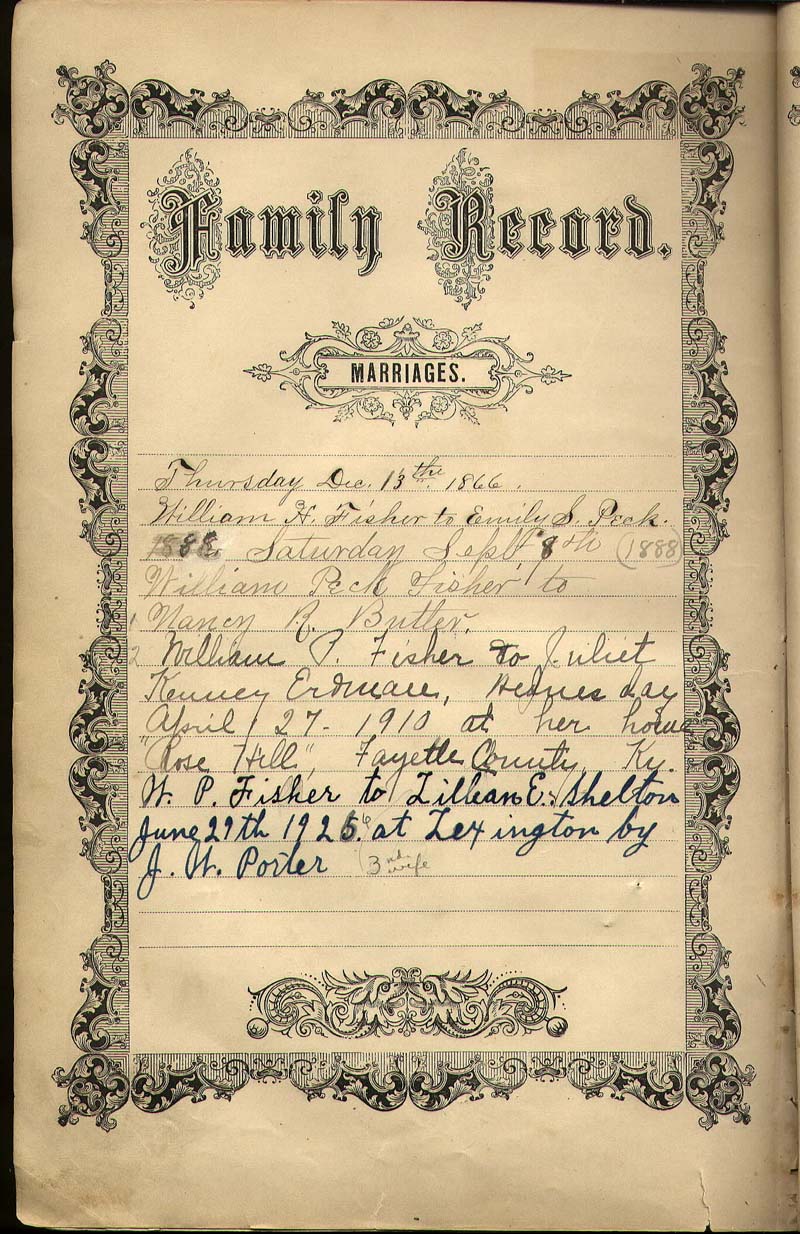 Family Record.
MARRIAGES.
Thursday Dec. 13th 1866.
William H. Fisher to Emily S. Peck.
1888. Saturday Sept 8th (1888)
William Peck Fisher to
1 Nancy R. Butler.
2 William P. Fisher to Juliet
Kenney Erdman, Wednesday
April 27- 1910 at her home
"Rose Hill", Fayette County, Ky.
W. P. Fisher to Lillian E. Shelton
June 29th 1926. at Lexington by
J. W. Porter (3rd wife